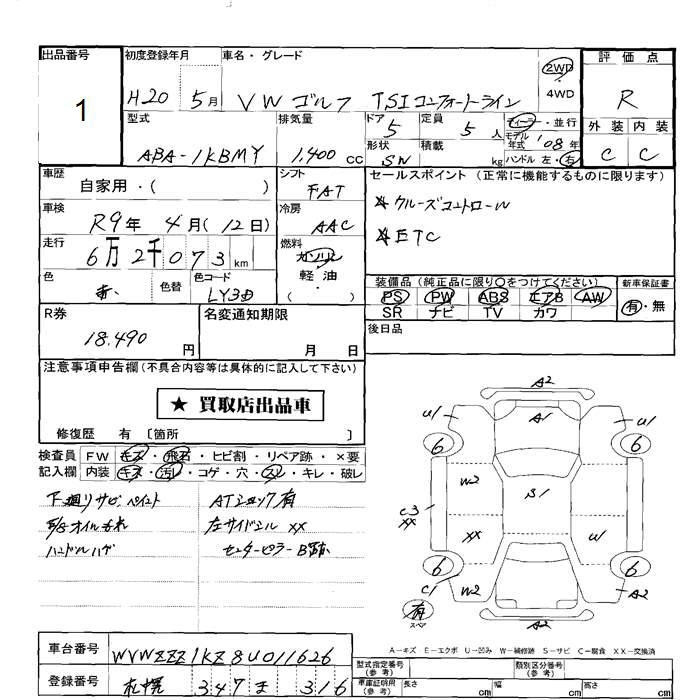 出品番号
1
初度登録年月
H20 5月
車名・グレード
VW ゴルフ TSIコンフォートライン
2WD
4WD
評価点
R
型式
ABA-1KBMY
排気量
1,400 cc
ドア
5
定員
5 人
ディーラー・並行
モデル年式 '08年
形状
SW
積載
kg
ハンドル 左・右
外装 内装
C C
車歴
自家用・( )
シフト
FAT
車検
R9年 4月(12日)
冷房
AAC
走行
6万2千073km
燃料
ガソリン
軽油
( )・
色
赤
色替
色コード
LY3D
セールスポイント(正常に機能するものに限ります)
*クルーズコントロール
*ETC
装備品(純正品に限り○をつけてください)
PS PW ABS エアB AW
SR ナビ TV カワ
新車保証書
有・無
R券
18,490 円
名変通知期限
月 日
後日品
注意事項申告欄(不具合内容等は具体的に記入して下さい)
★ 買取店出品車
修復歴 有 〔箇所 〕
検査員記入欄
FW キズ・飛石・ヒビ割・リペア跡・×要
内装 キズ・汚れ・コゲ・穴・スレ・キレ・破レ
下廻りサビ ペイント
E/Gオイルもれ
ハンドルハゲ
ATショック有
左サイドシル XX
センターピラー
A2
U1 A1 U1
6 6
W2
C3 XX B1
XX U
6 6
C1 W2 A2
有 スペア
A2
A-キズ E-エクボ U-凹み W-補修跡 S-サビ C-腐食 XX-交換済
車台番号
WVWZZZ1KZ8U011626
登録番号
札幌 347 ま 316
型式指定番号(参考)
類別区分番号(参考)
車庫証明用(参考)
長さ cm
幅 cm
高さ cm